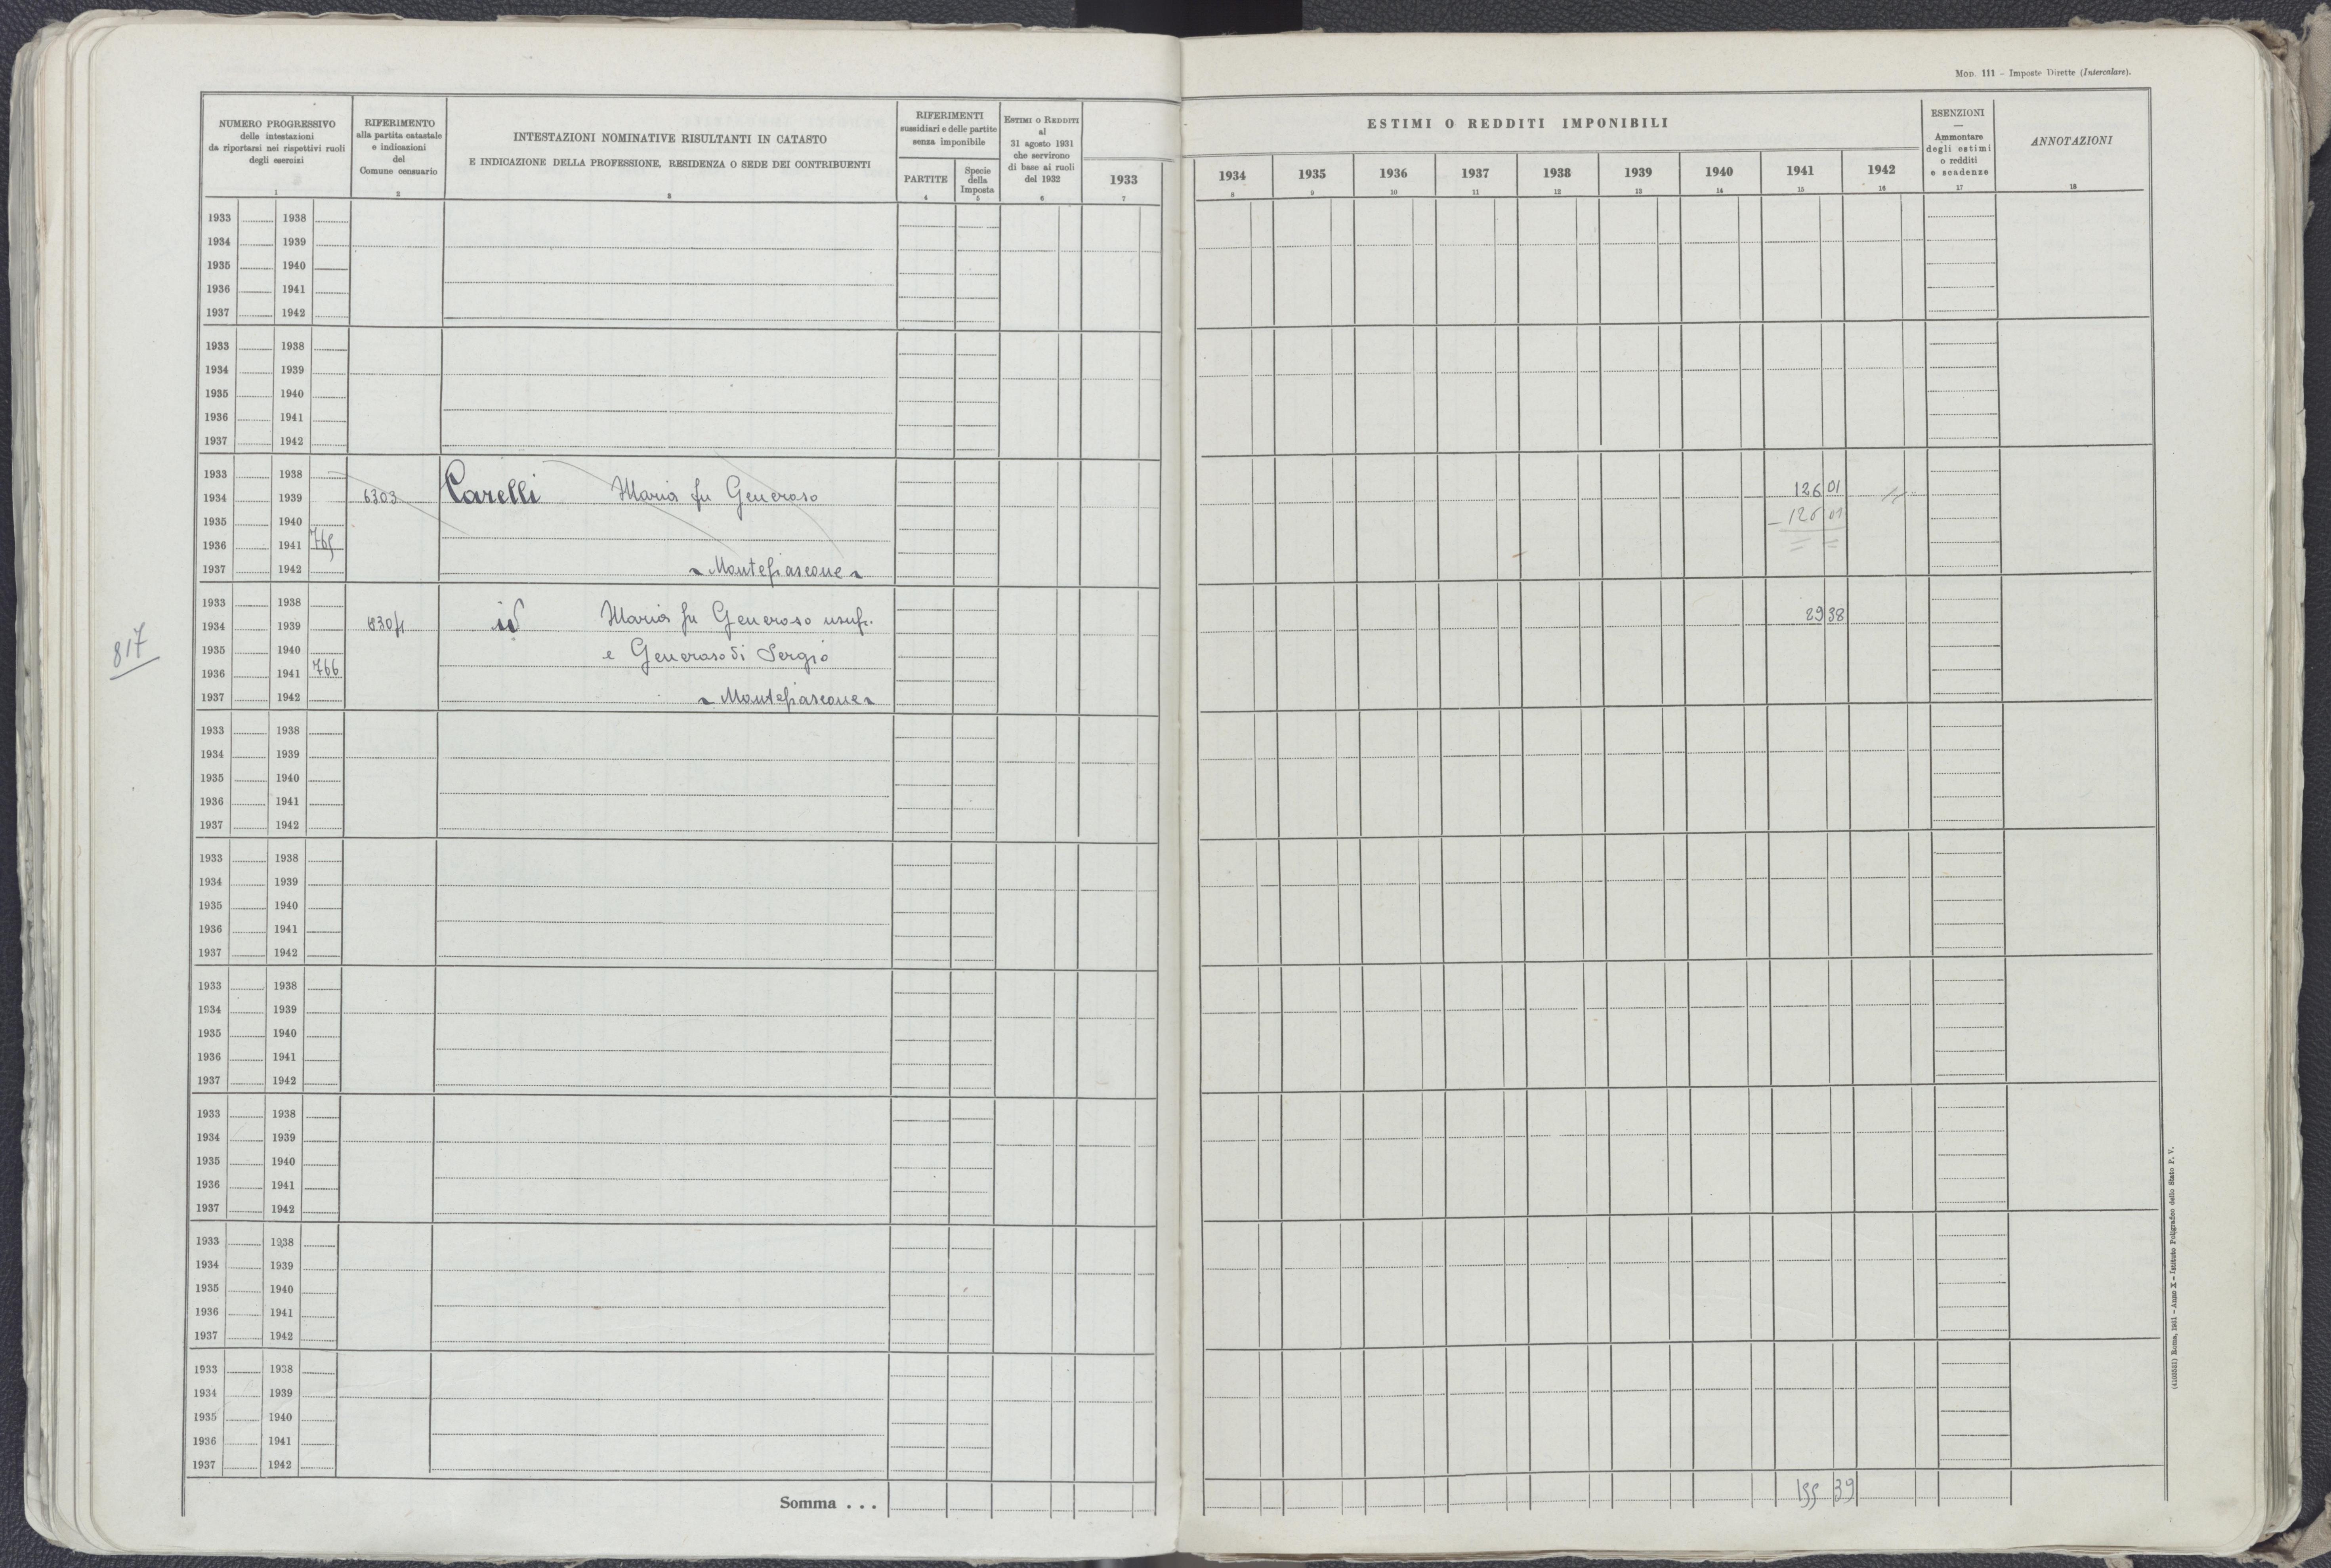 MOD. 111 – Imposte Dirette (Intercalare).
NUMERO PROGRESSIVO
delle intestazioni
da riportarsi nei rispettivi ruoli
degli esercizi
1
RIFERIMENTO
alla partita catastale
e indicazioni
del
Comune censuario
2
INTESTAZIONI NOMINATIVE RISULTANTI IN CATASTO
E INDICAZIONE DELLA PROFESSIONE, RESIDENZA O SEDE DEI CONTRIBUENTI
3
RIFERIMENTI
sussidiari e delle partite
senza imponibile
PARTITE
4
Specie
della
Imposta
5
ESTIMI O REDDITI
al
31 agosto 1931
che servirono
di base ai ruoli
del 1932
6
1933
7
ESTIMI O REDDITI IMPONIBILI
1934 1935 1936 1937 1938 1939 1940 1941 1942
8 9 10 11 12 13 14 15 16
ESENZIONI
—
Ammontare
degli estimi
o redditi
e scadenze
17
ANNOTAZIONI
18
1933 1938
1934 1939
1935 1940
1936 1941
1937 1942
1933 1938
1934 1939
1935 1940
1936 1941
1937 1942
1933 1938
1934 1939 6303 Carelli Maria fu Generoso 126 01
1935 1940 – 126 01
1936 1941 765
1937 1942 Montefiascone
1933 1938
1934 1939 6304 id Maria fu Generoso usufr. 29 38
1935 1940 e Generoso di Sergio
817
1936 1941 766
1937 1942 Montefiascone
1933 1938
1934 1939
1935 1940
1936 1941
1937 1942
1933 1938
1934 1939
1935 1940
1936 1941
1937 1942
1933 1938
1934 1939
1935 1940
1936 1941
1937 1942
1933 1938
1934 1939
1935 1940
1936 1941
1937 1942
1933 1938
1934 1939
1935 1940
1936 1941
1937 1942
1933 1938
1934 1939
1935 1940
1936 1941
1937 1942
Somma . . . 155 39
(4103531) Roma, 1931 – Anno X – Istituto Poligrafico dello Stato P. V.